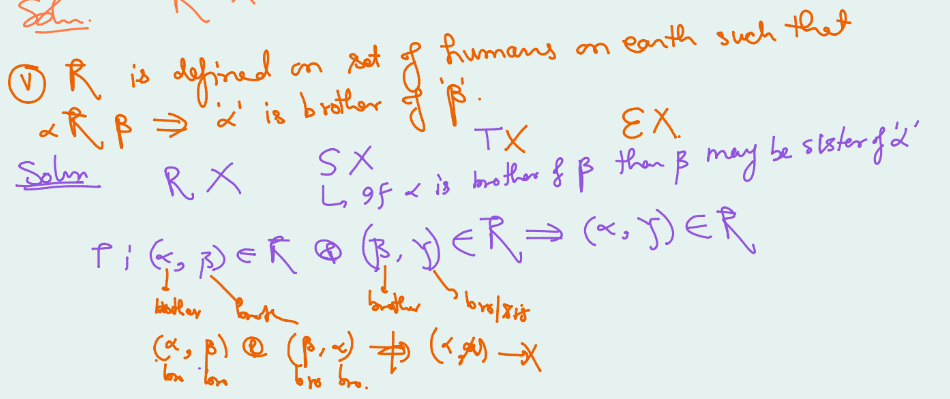 Soln.
(v) R is defined on set of humans on earth such that
α R β ⇒ 'α' is brother of 'β'.
Soln R X S X T X E X.
↳ gf α is brother of β then β may be sister of 'α'
T; (α, β) ∈ R & (β, γ) ∈ R ⇒ (α, γ) ∈ R
brother brother bro/sis
(α, β) & (β, α) ⇏ (α, α) → X
bro bro bro bro.